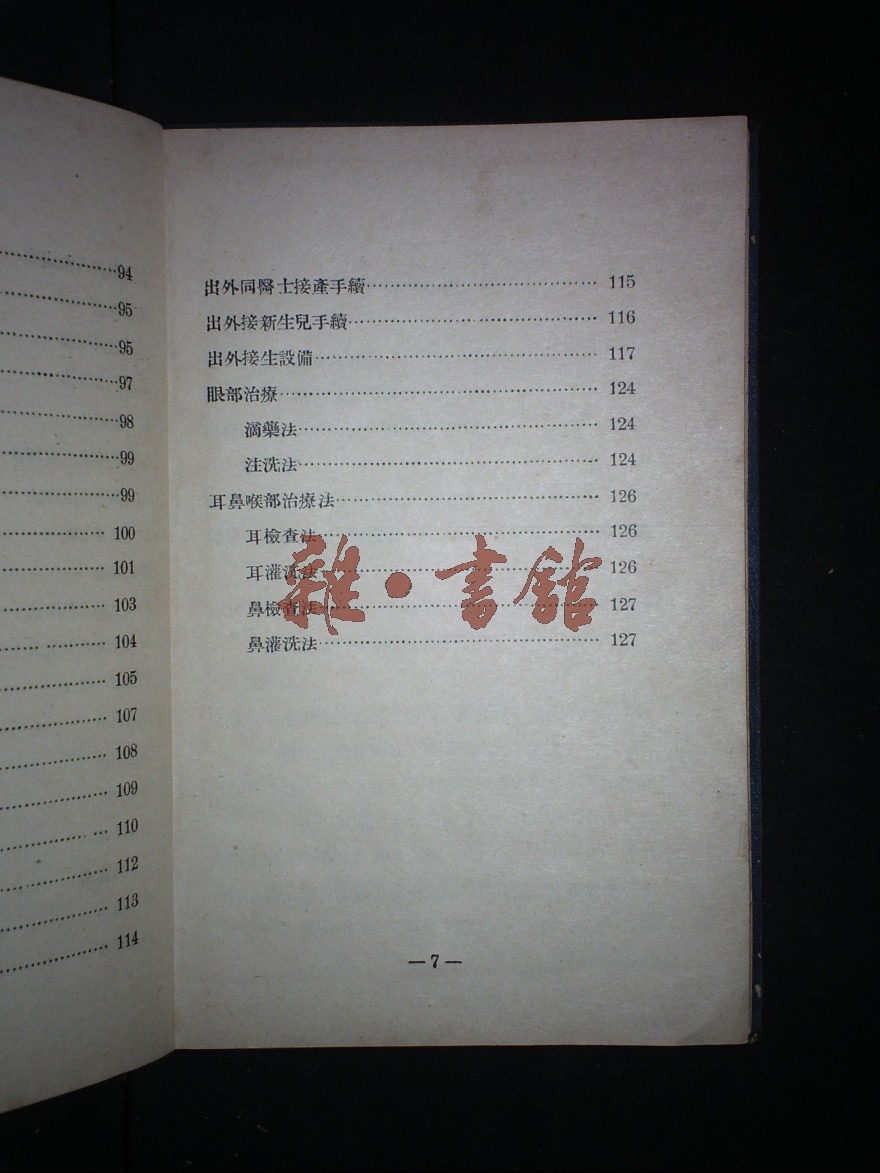 94
95
95
97
98
99
99
100
101
103
104
105
107
108
109
110
112
113
114
出外同醫士接產手續 115
出外接新生兒手續 116
出外接生設備 117
眼部治療 124
滴藥法 124
注洗法 124
耳鼻喉部治療法 126
耳檢查法 126
耳灌洗法 126
鼻檢查法 127
鼻灌洗法 127
雜·書館
—7—